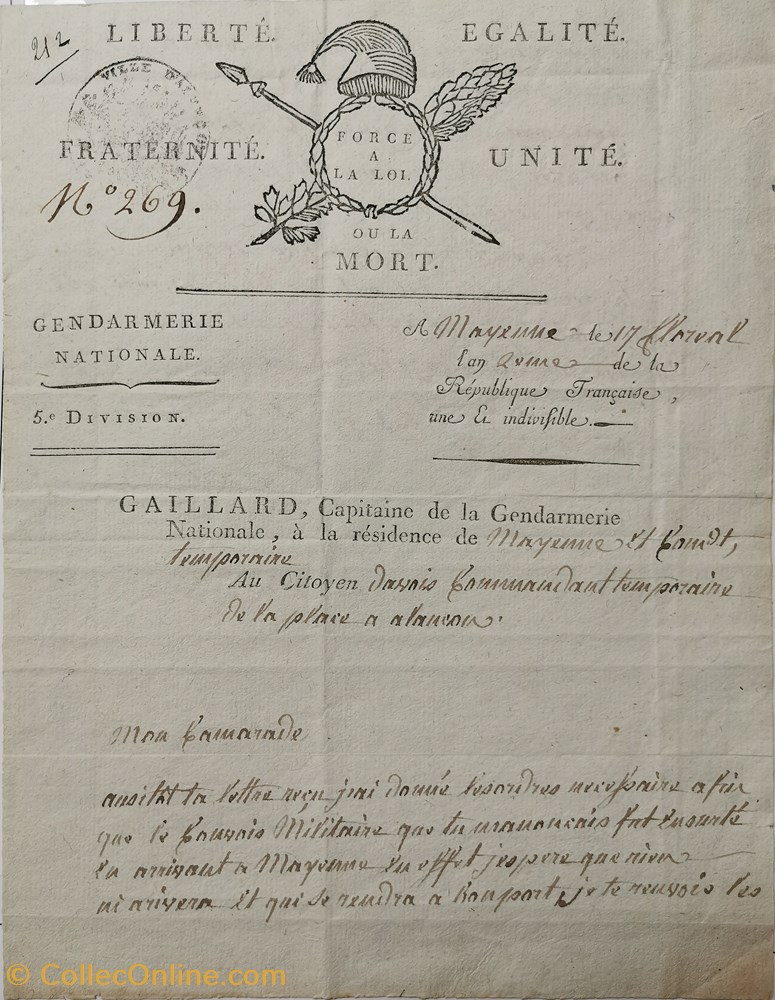 212
LIBERTÉ. EGALITÉ.
VILLE D'ALENÇON
FORCE
A
LA LOI.
FRATERNITÉ. UNITÉ.
N.º 269.
OU LA
MORT.
GENDARMERIE
NATIONALE.
5.e DIVISION.
A Mayenne le 17 floreal
l'an 2eme de la
République Française,
une Et indivisible.
GAILLARD, Capitaine de la Gendarmerie
Nationale, à la résidence de Mayenne Et Comdt,
temporaire
Au Citoyen davois Commandant temporaire
de la place a alancon.
Mon Camarade
ausitot ta lettre reçu j'ai donné les ordres necessaire afin
que le Convois Militaire que tu manoncais fut Ensurté
En arrivant a Mayenne En effet jespere que rien
ni arivera Et qui se rendra a bon port, je te renvois les
© CollecOnline.com